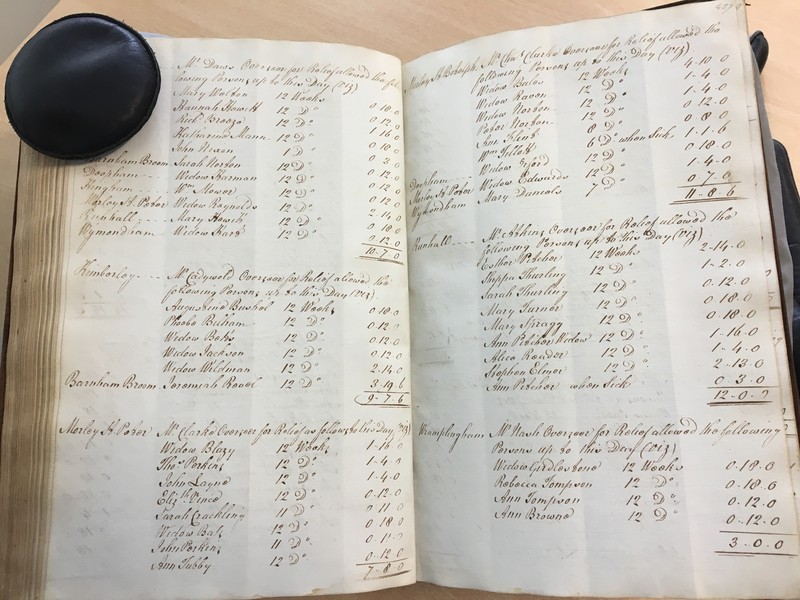 Mr Daws Overseer for Relief allowed the fol
lowing Persons up to this Day (viz)
Mary Wolton 12 Weeks 0.18.0
Hannah Howett 12 Do 0.12.0
Richd Breeze 12 Do 1.16.0
Katherine Mann 12 Do 0.18.0
John Nixon 1 Do 0.3.0
Barnham Broom Sarah Norton 12 Do 0.12.0
Deopham Widow Harman 12 Do 0.12.0
Hingham Wm Mower 12 Do 0.12.0
Morley St Peter Widow Reynolds 12 Do 2.14.0
Runhall Mary Howick 12 Do 0.18.0
Wymondham Widow 12 Do 0.12.0
10.7.0
Kimberley Mr Cadywold Overseer for Relief allowed the
following Persons up to this Day (viz)
Augustine Bushel 12 Weeks 0.18.0
Phoebe Bilham 12 Do 0.12.0
Widow Bobs 12 Do 0.12.0
Widow Jackson 12 Do 0.12.0
Widow Wildman 12 Do 2.14.0
Barnham Broom Jeremiah 12 Do 3.19.6
9.7.6
Morley St Peter Mr Clarke Overseer for Relief as follows to this Day (viz)
Widow Blazy 12 Weeks 1.16.0
Thos Perkins 12 Do 1.4.0
John Layne 12 Do 1.4.0
Elizth Vince 12 Do 0.12.0
Sarah Crackling 11 Do 0.11.0
Widow Bals 12 Do 0.18.0
John Perkins 11 Do 0.11.0
Ann Tubby 12 Do 0.12.0
7.8.0
Morley St Botolph Mr Chas Clarke Overseer for Relief allowed the
following Persons up to this Day (viz)
Widow Bales 12 Weeks 4.10.0
Widow Raven 12 Do 1.4.0
Widow Norton 12 Do 1.4.0
Peter Norton 12 Do 0.12.0
Sue Kent 8 Do 0.8.0
Wm Tillott 6 Do when Sick 1.1.6
Deopham Widow 12 Do 0.18.0
Morley St Peter Widow Edwards 12 Do 1.4.0
Wymondham Mary Daniels 7 Do 0.7.0
11.8.6
Runhall Mr Atkins Overseer for Relief allowed the
following Persons up to this Day (viz)
Esther Pitcher 12 Weeks 2.14.0
Skippa Thurling 12 Do 1.2.0
Sarah Thurling 12 Do 0.12.0
Mary Turner 12 Do 0.18.0
Mary Spragg 12 Do 0.18.0
Ann Pitcher Widow 12 Do 1.16.0
Alice Reader 12 Do 1.4.0
Stephen Elmer 12 Do 2.13.0
Ann Pitcher when Sick 0.3.0
12.0.0
Wramplingham Mr Nash Overseer for Relief allowed the following
Persons up to this Day (viz)
Widow Girdlestone 12 Weeks 0.18.0
Rebecca Tompson 12 Do 0.18.0
Ann Tompson 12 Do 0.12.0
Ann Browne 12 Do 0.12.0
3.0.0